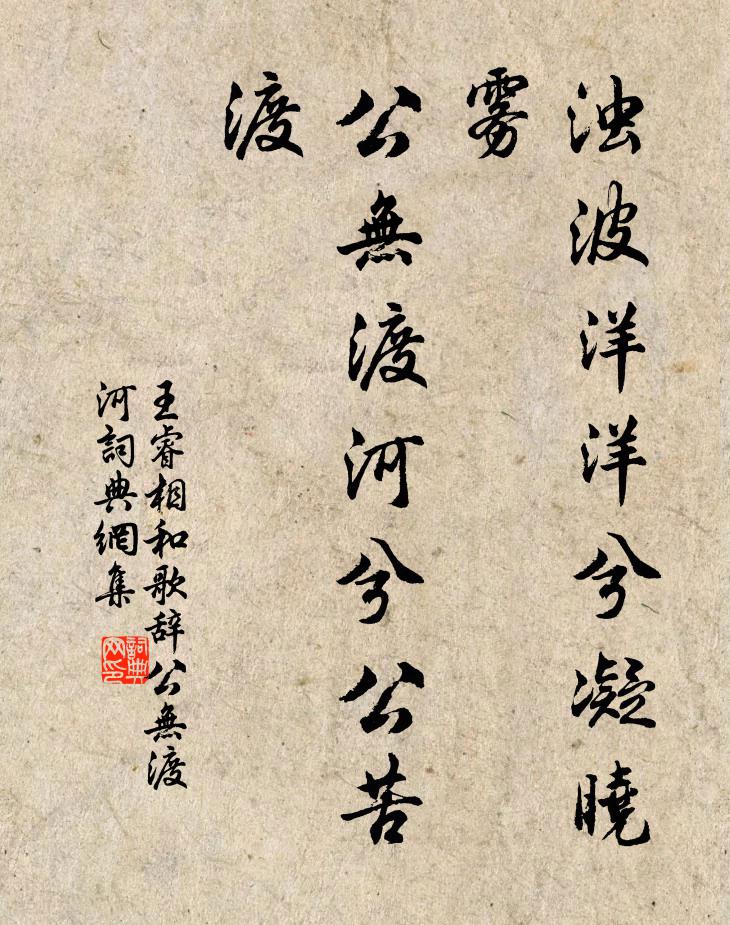 浊波洋洋兮凝曉
雾
公無渡河兮公苦
渡
王睿相和歌辞公無渡
河詞典網集
詞典
网印